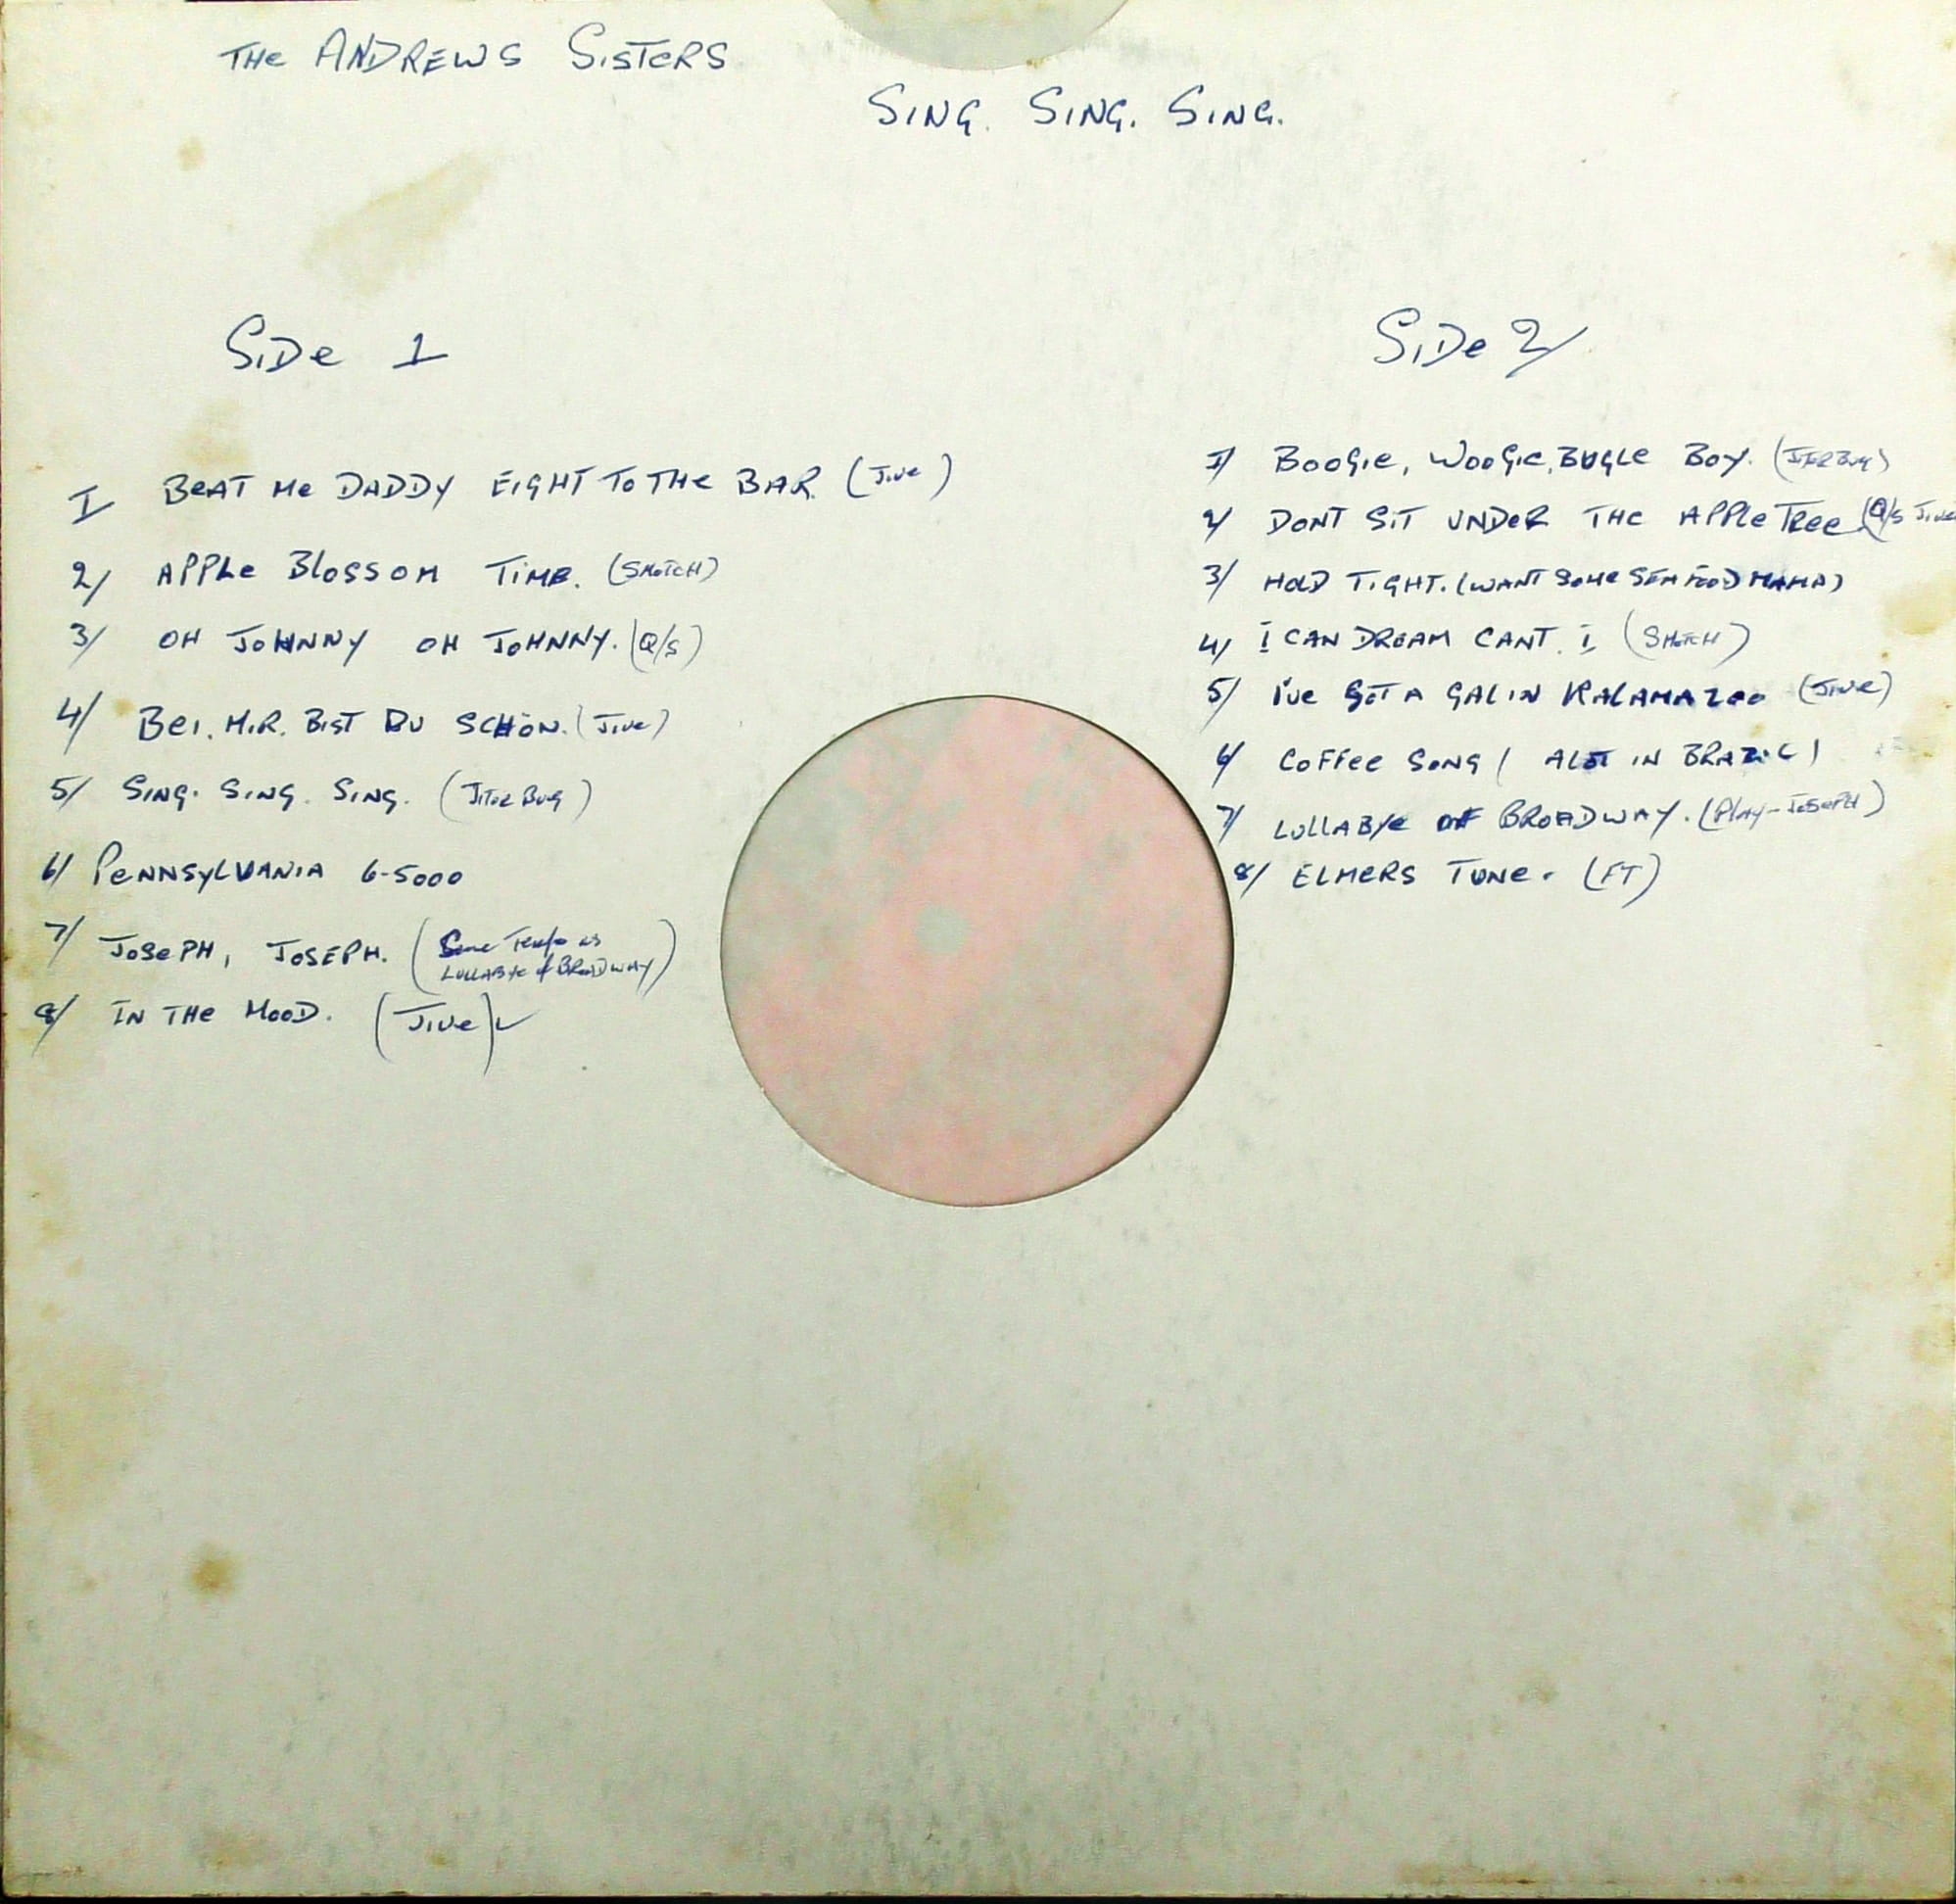 THe ANDREWS SiSTeRS
SING. SING. SING.
SiDe 1
I BeAT Me DADDY EIGHT To THe BAR. (Jive)
2/ APPLe BloSSOM TiMe. (SMoTCH)
3/ OH JoHNNY OH JoHNNY. (Q/S)
4/ Bei. MiR. BiST DU SCHÖN. (Jive)
5/ SiNG. SiNG. SiNG. (JiTeRBug)
6/ PeNNSyLVANiA 6-5000
7/ JoSePH, JOSEPH. (Same Tempo as
LULLABYe of BRoaDWAY)
8/ IN THe MooD. (Jive)✓
SiDe 2/
1/ BooGie, WooGie, BUGLe Boy. (JiTeRBug)
2/ DONT SiT UNDeR THe APPLeTRee. (Q/S Jive
3/ HoLD TiGHT. (WANT SoMe SEA FooD MAMA)
4/ I CAN DReAM CANT. I (SMoTCH)
5/ I've GoT A GAL IN KALAMAZoo (Jive)
6/ CoFFee SoNG ( ALoT IN BRAZiL)
7/ LULLABYe OF BRoADWAY. (PlAy-JoSePH)
8/ ELMeRS TUNe. (FT)